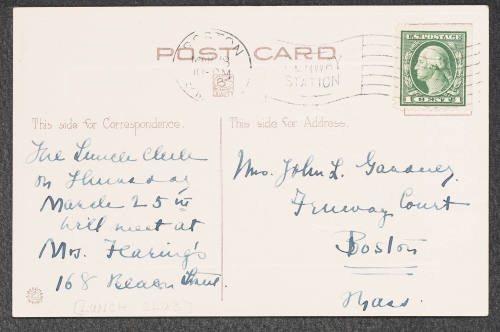 POST CARD
BOSTON
FENWAY
STATION
U.S. POSTAGE
1 CENT 1
This side for Correspondence.
The Lunch Club
on Thursday
March 25th
will meet at
Mrs.
168 Beacon Street.
[LUNCH CLUB]
This side for Address.
Mrs. John L. Gardner.
Fenway Court
Boston
Mass.